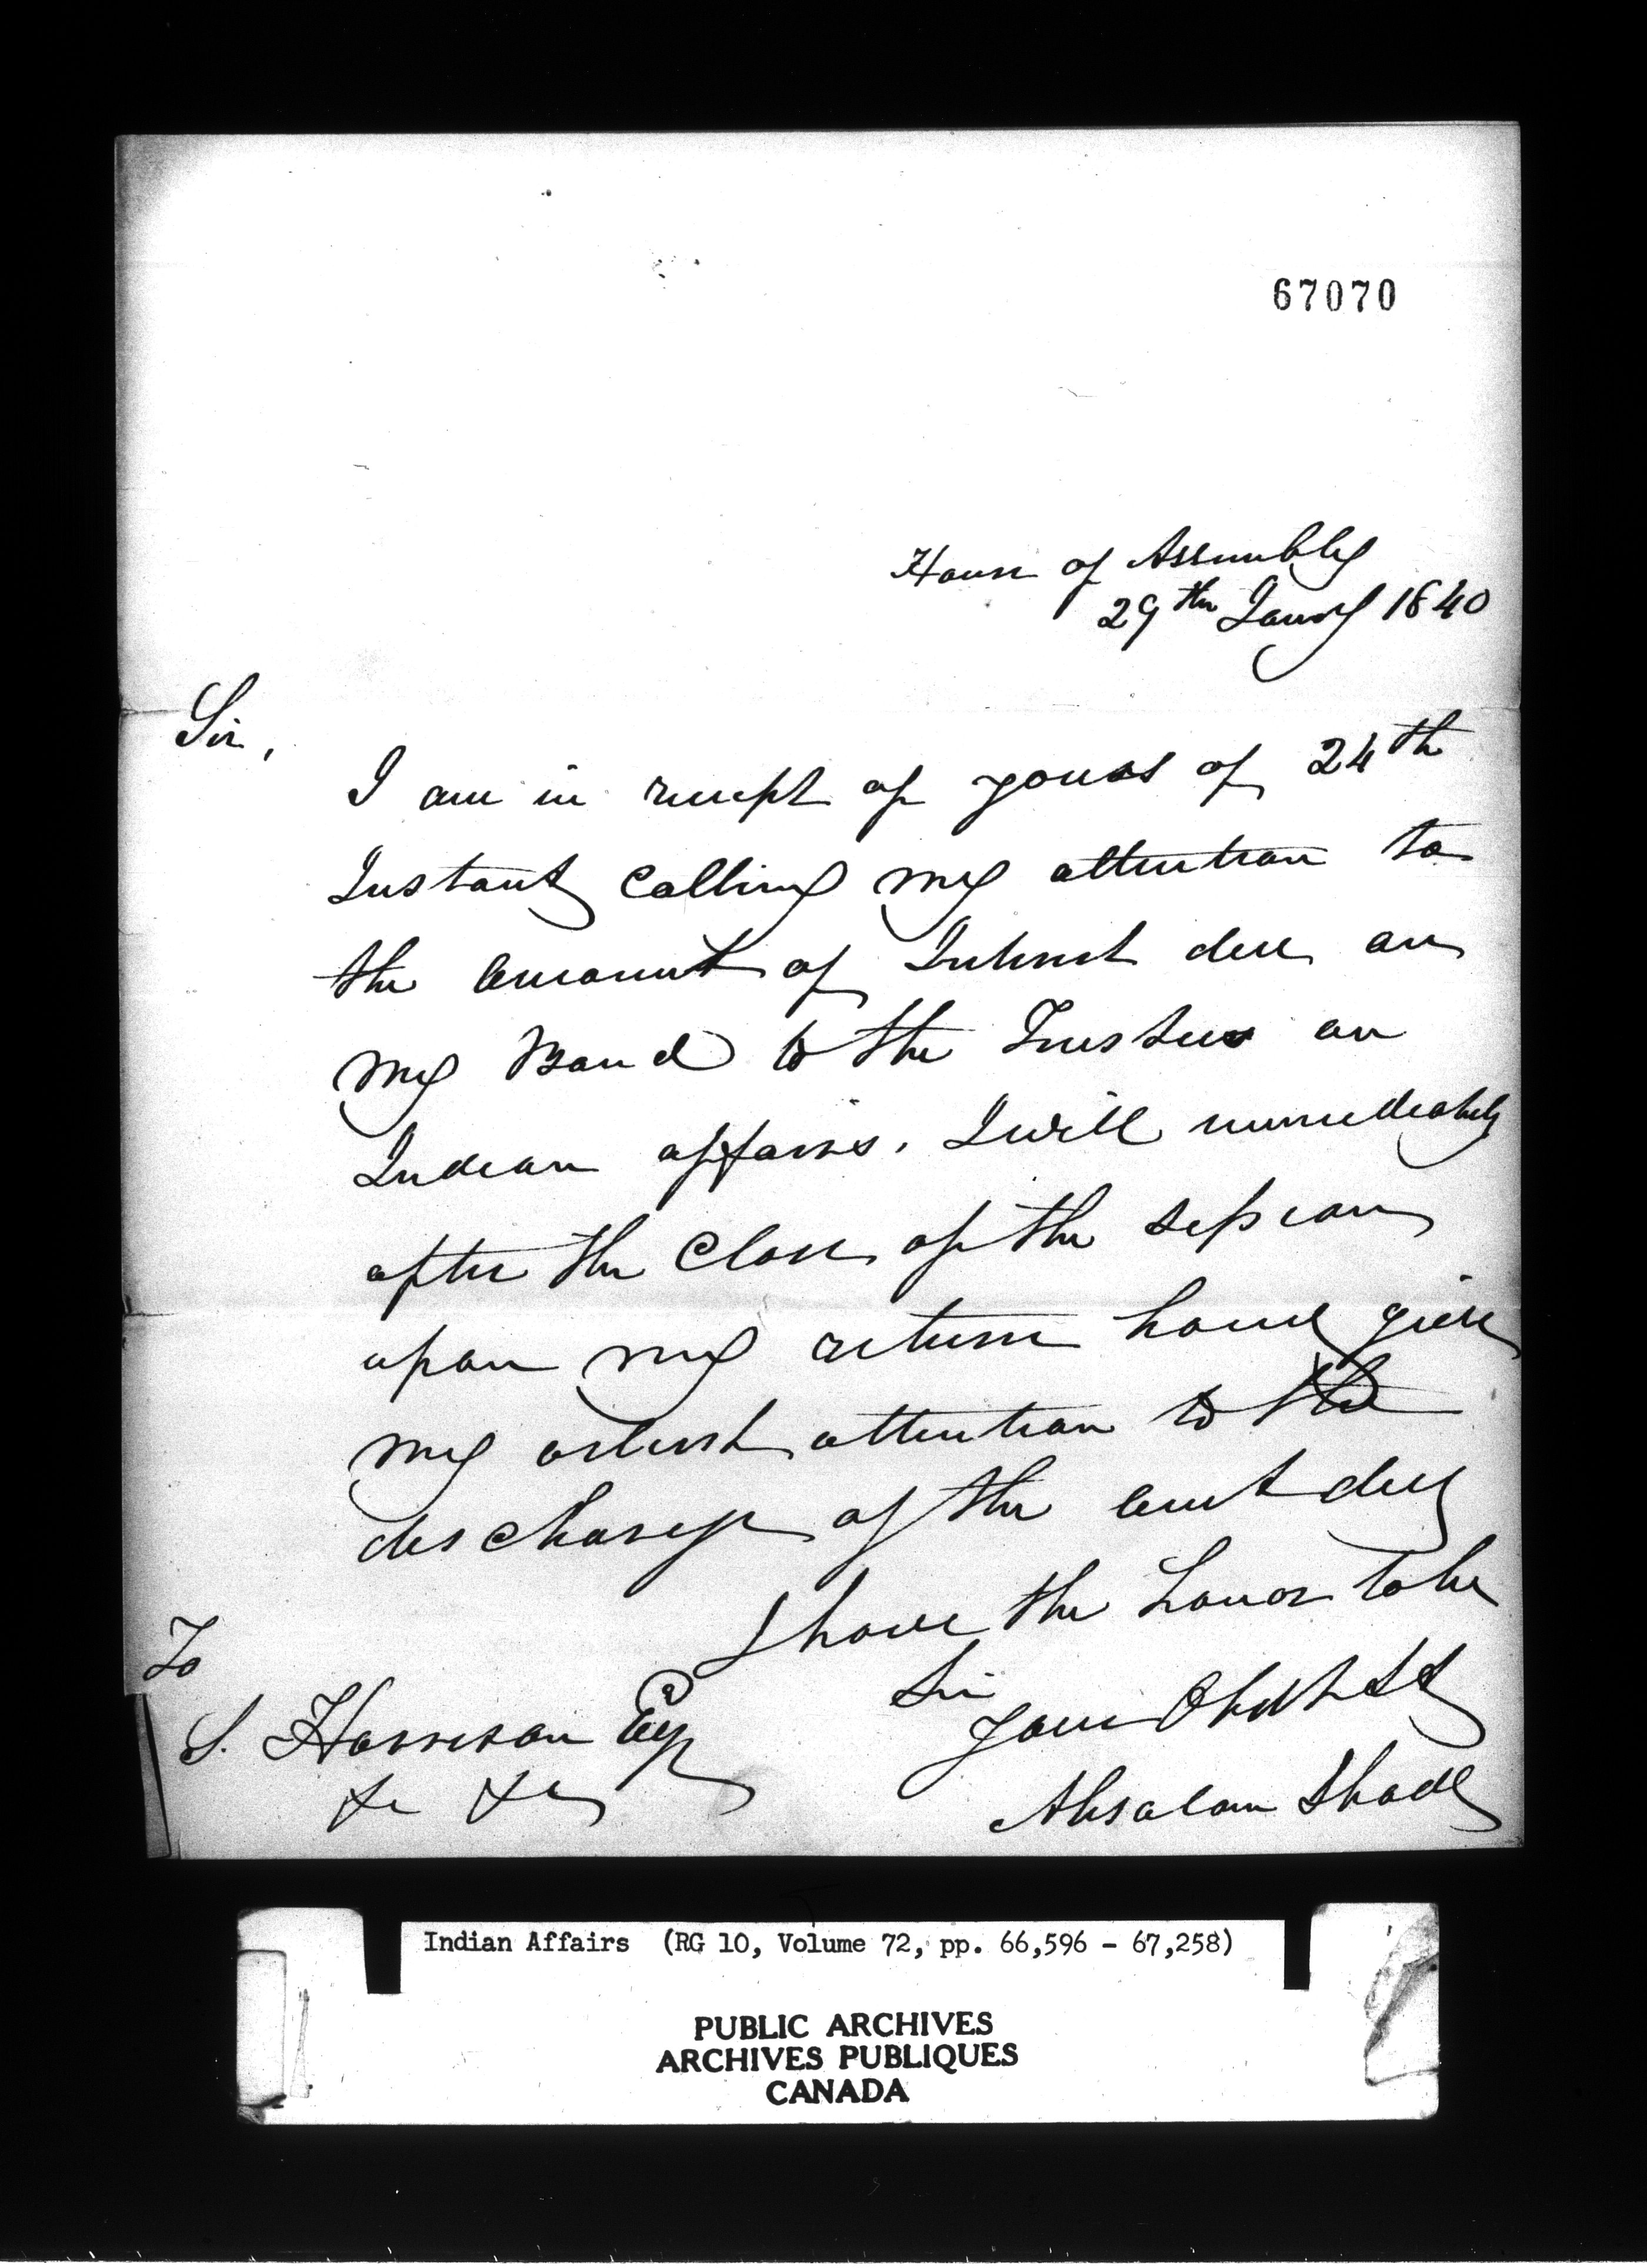 67070
House of Assembly
29th Jany 1840
Sir,
I am in receipt of yours of 24th
Instant Calling my attention to
the amount of Interest due on
my Bond to the Trustees on
Indian affairs. I will immediately
after the Close of the session
upon my return home give
my attention to the
discharge of the amt due
I have the honor to be
Sir
Your Obdt St
Absalom Shade
To
S. Harrison Esq
&c &c
Indian Affairs (RG 10, Volume 72, pp. 66,596 - 67,258)
PUBLIC ARCHIVES
ARCHIVES PUBLIQUES
CANADA